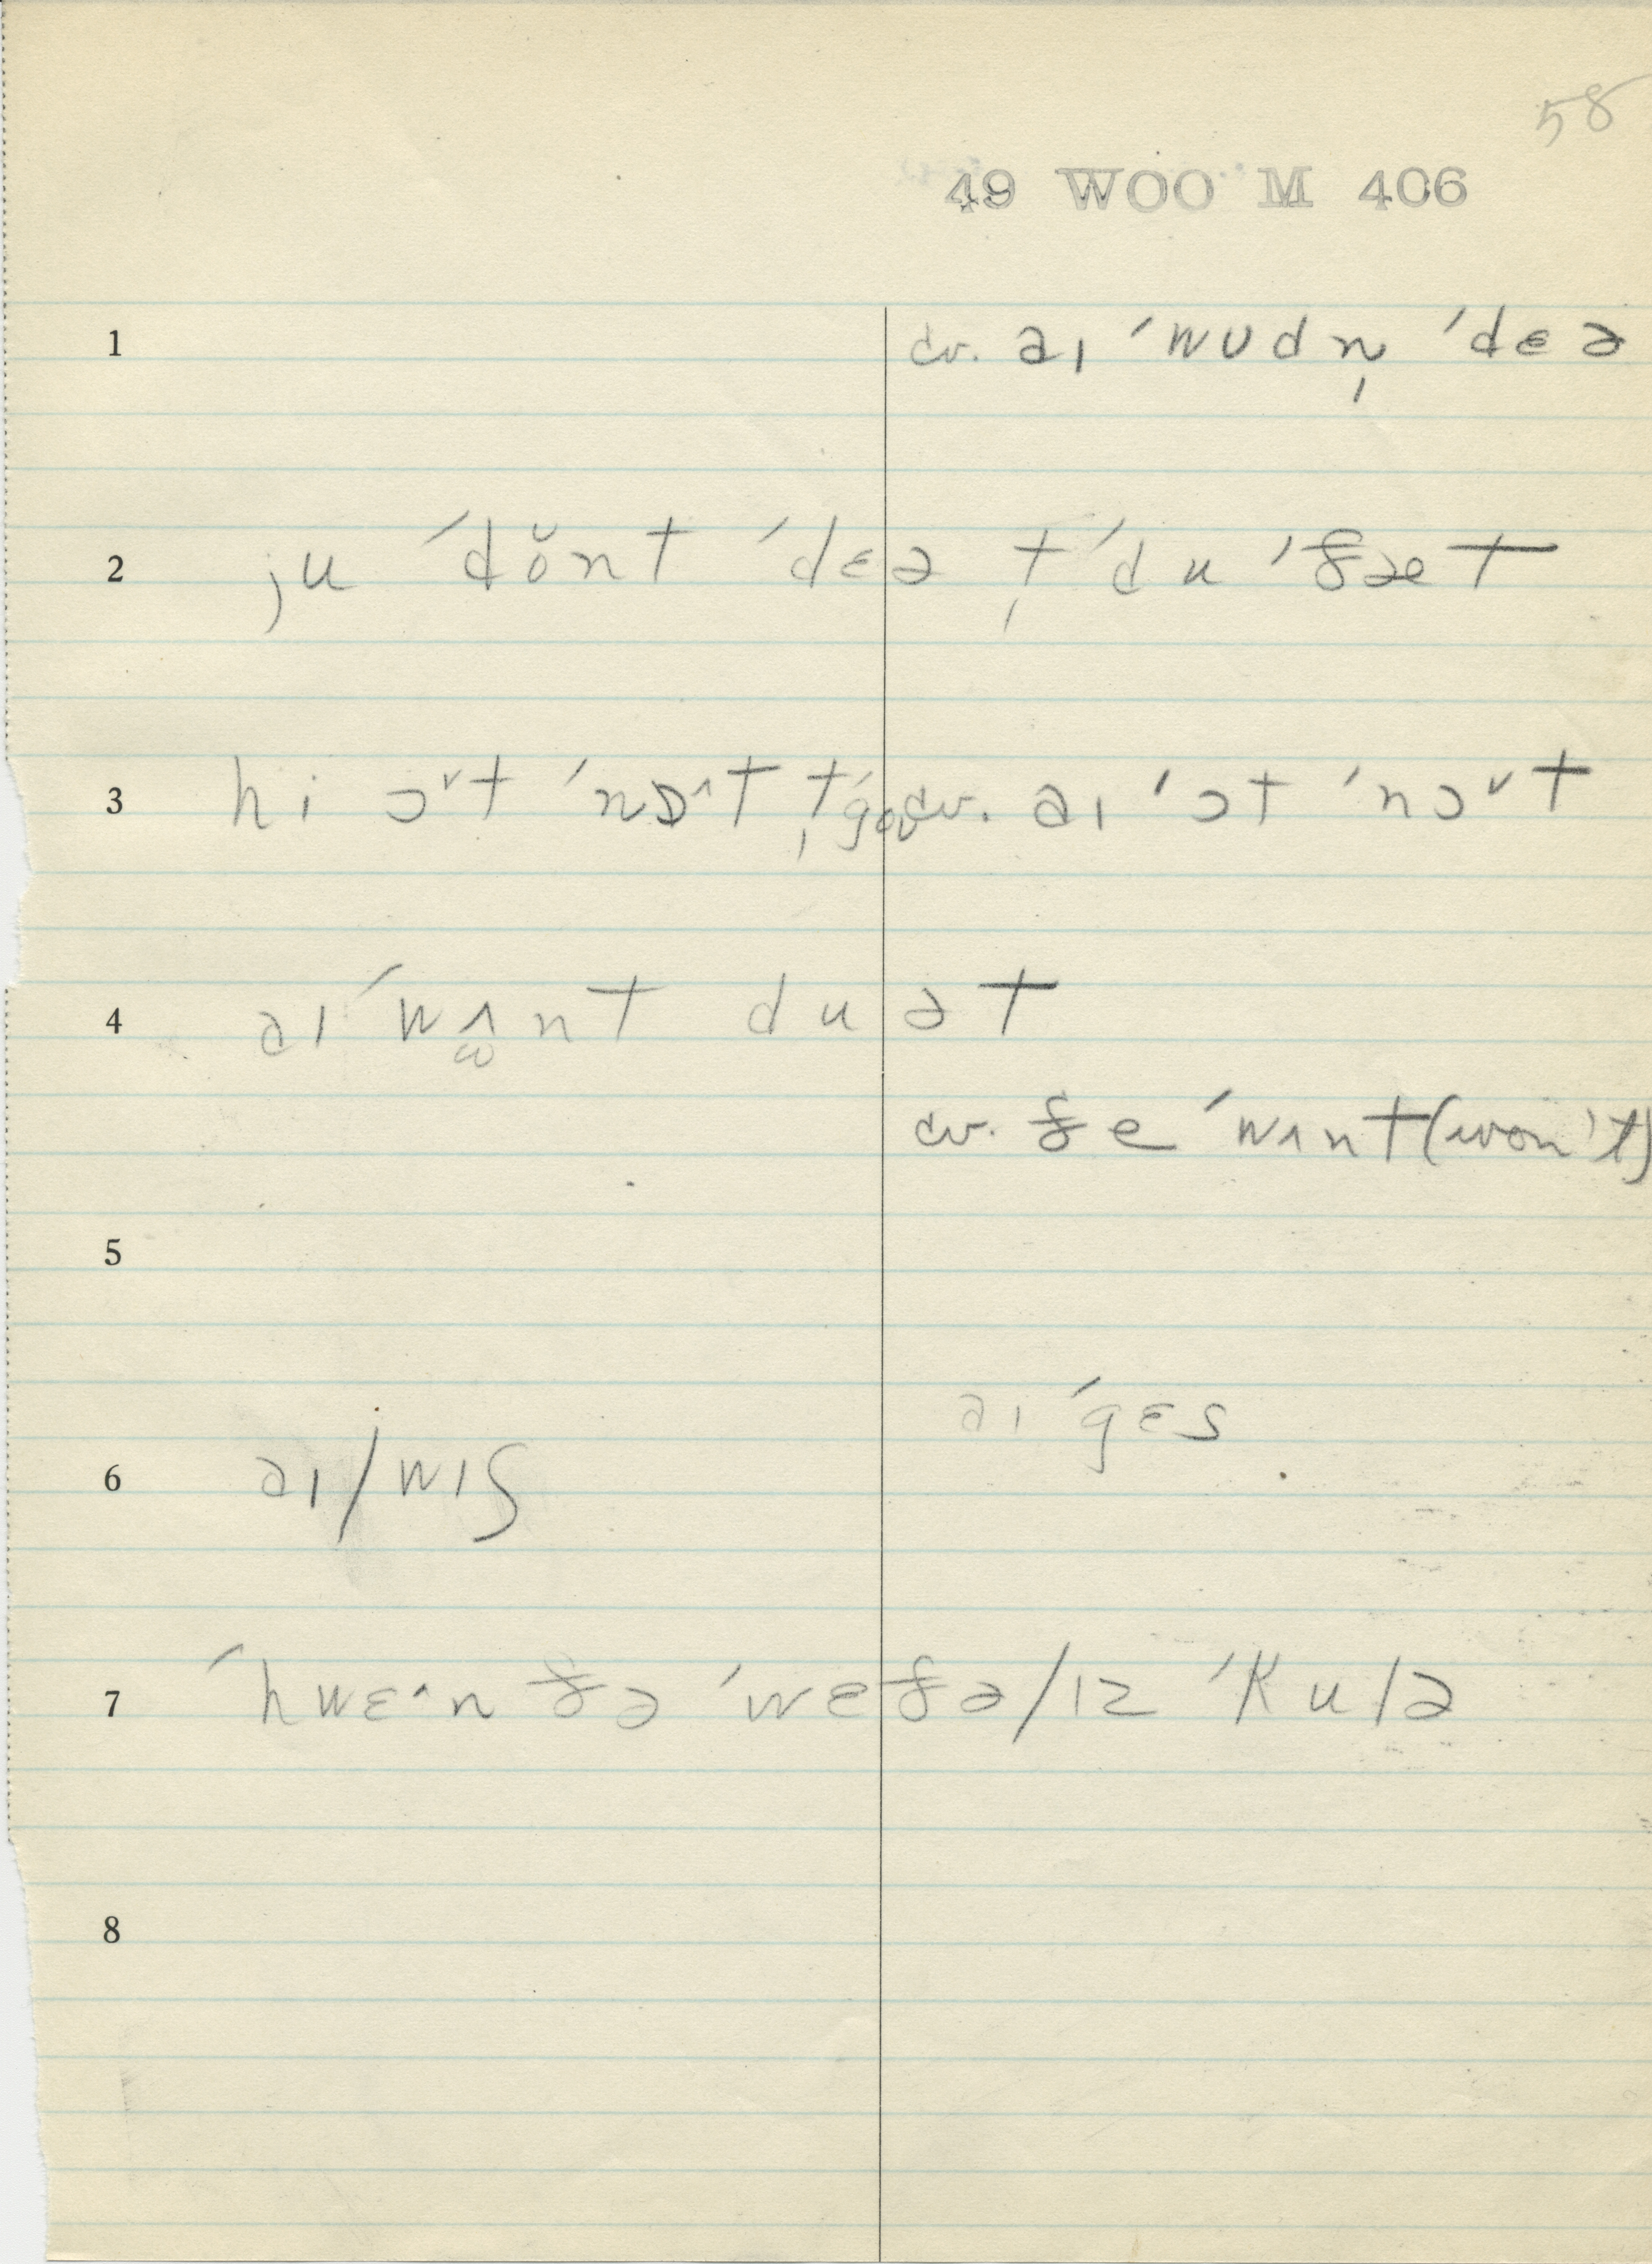 58
49 WOO M 406
1 cv. aɪ ˈwʊdn̩ ˈdɛə
2 ju ˈdŏnt ˈdɛə t̩ˈdu ˈðæt
3 hi ɔ˅t ˈnɒ˄t t̩ˈgoʊ cv. aɪ ˈɔt ˈnɔ˅t
4 aɪ ˈwʌ̫nt du ət
cv. ðe ˈwʌnt (won't)
5
aɪ ˈgɛs
6 aɪ/wɪʃ
7 ˈhwɛ˄n ðə ˈweðə/ɪz ˈkulə
8